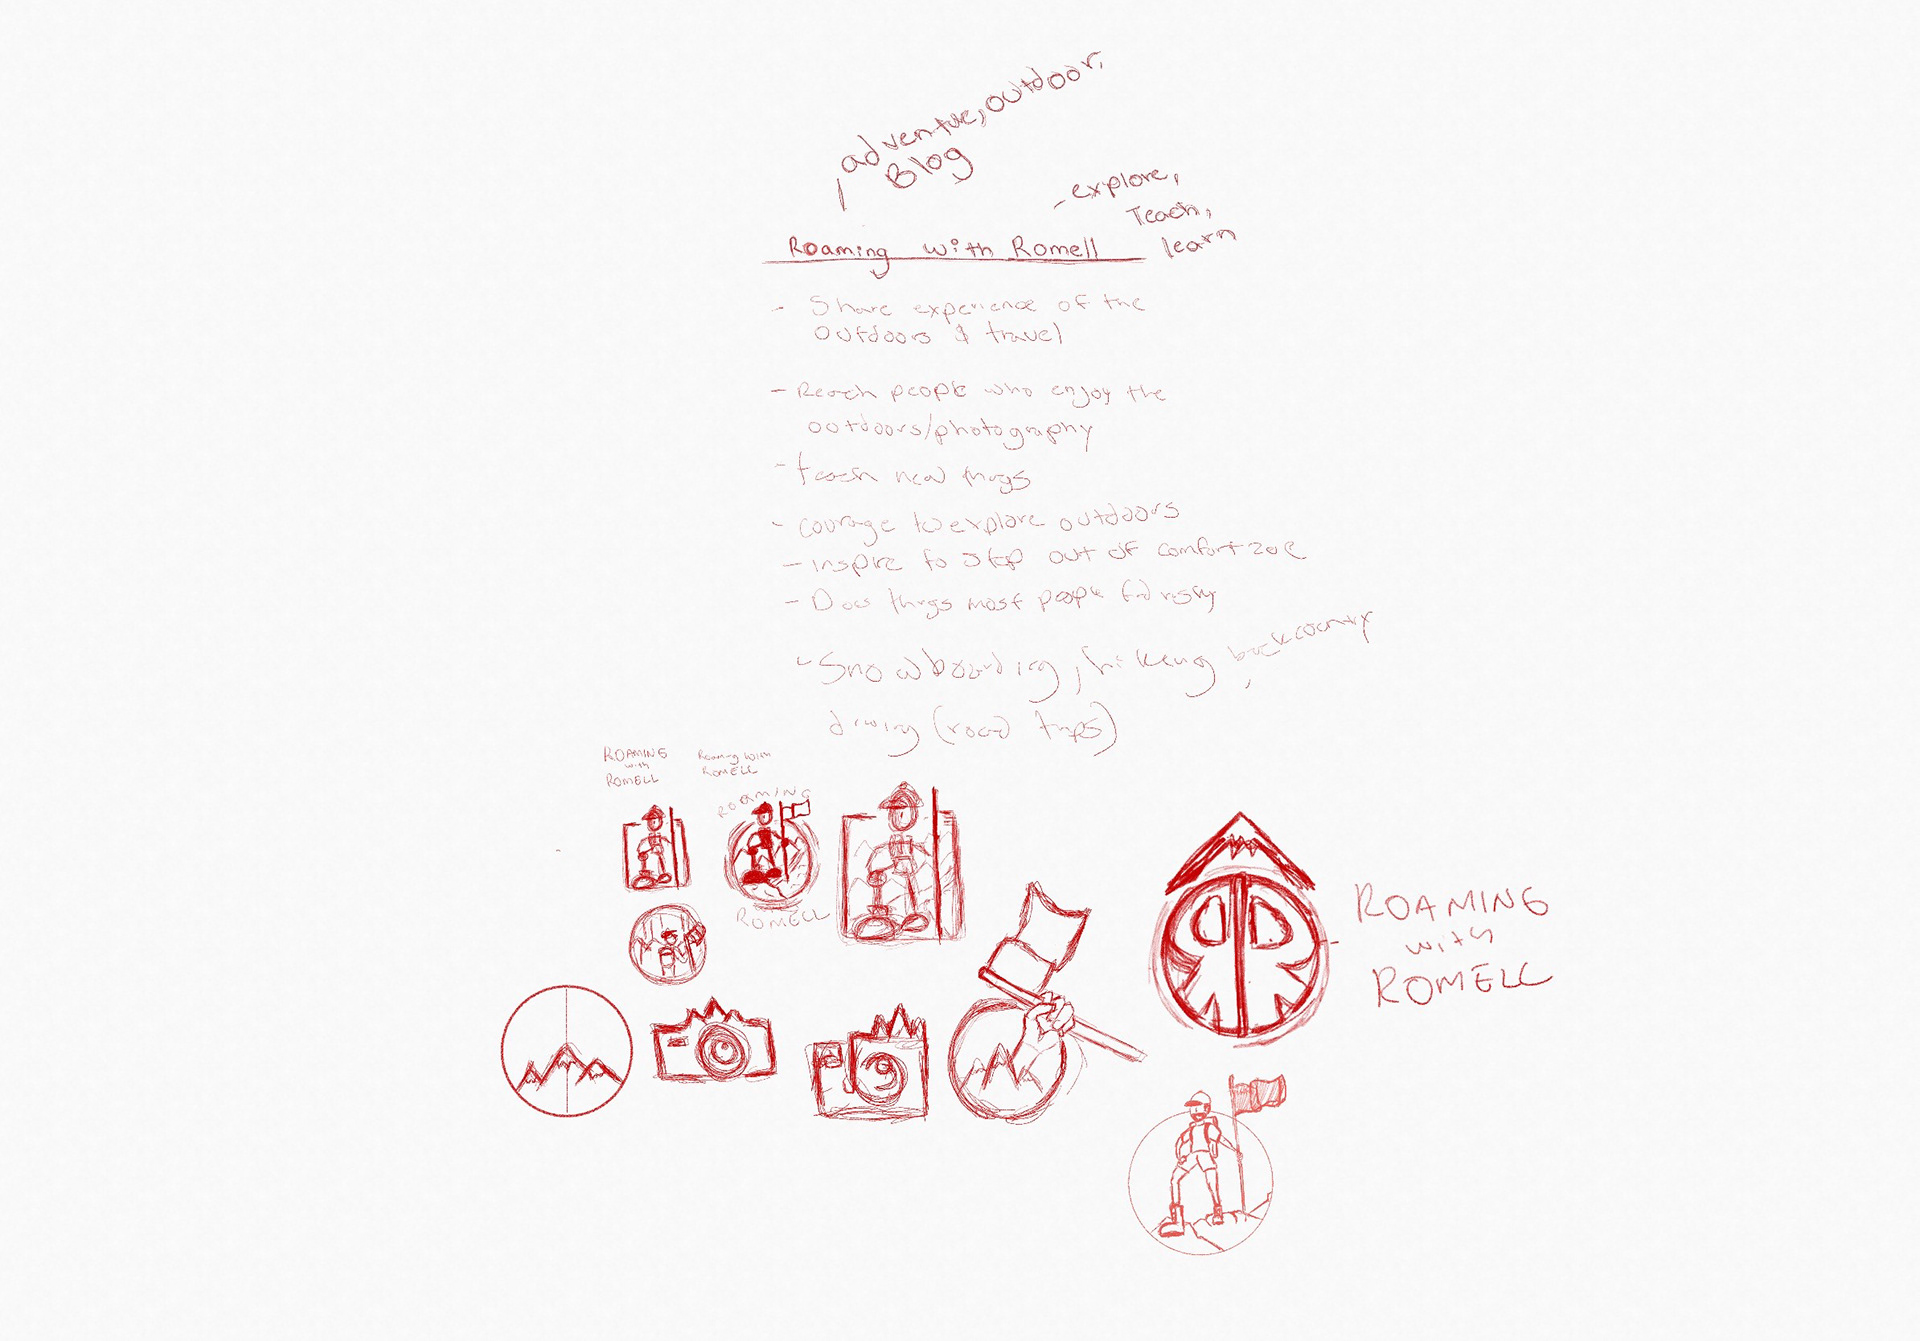 adventure, outdoor,
Blog
- explore,
Teach,
learn
Roaming with Romell
- Share experience of the
outdoors & travel
- Reach people who enjoy the
outdoors/photography
- teach new things
- courage to explore outdoors
- inspire to step out of comfort zone
- Does things most people find risky
- Snowboarding, hiking, backcountry
driving (road trips)
ROAMING
with
ROMELL
Roaming with
ROMELL
ROAMING
ROMELL
ROAMING
with
ROMELL